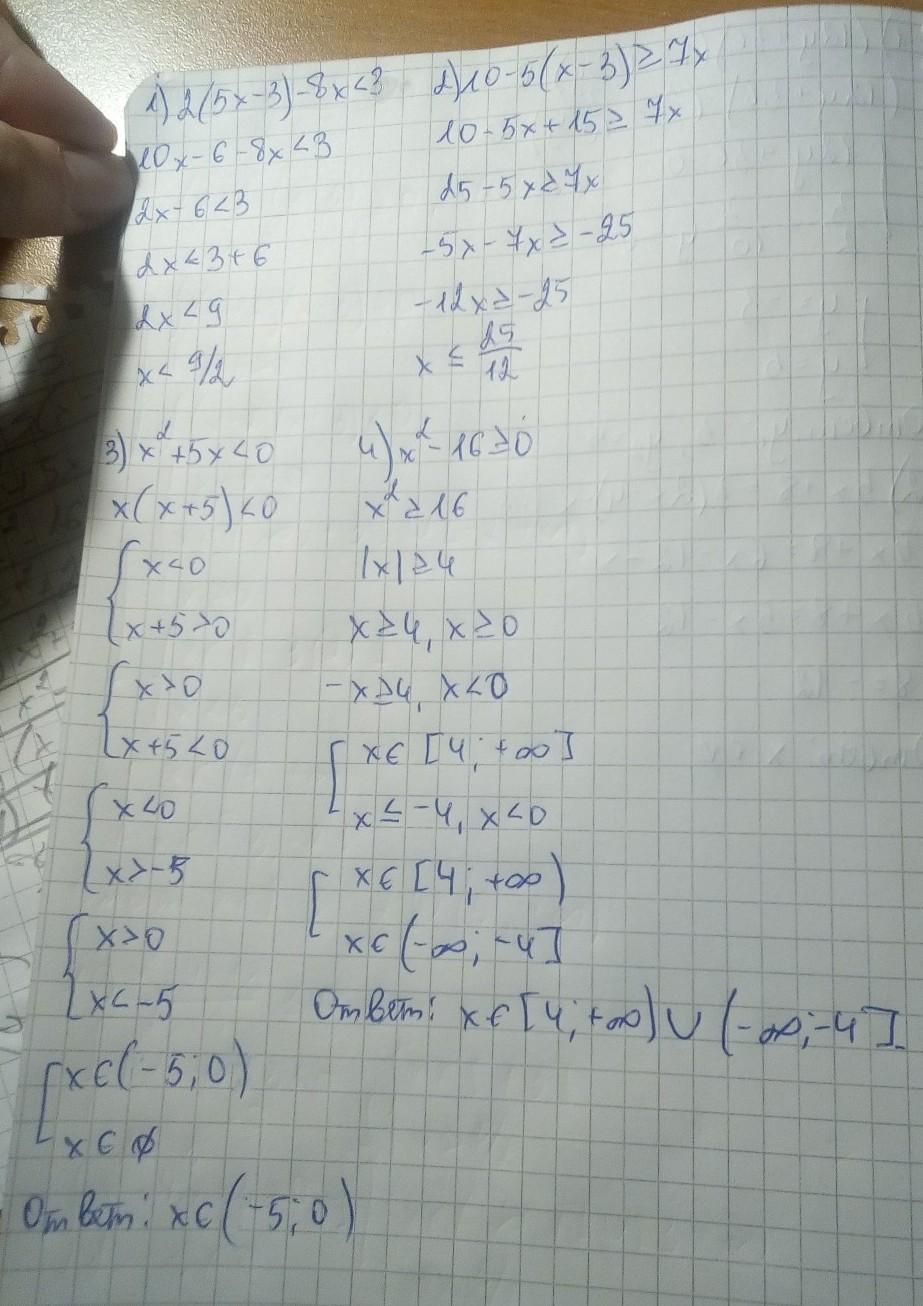 1) 2(5x-3)-8x<3
10x-6-8x<3
2x-6<3
2x<3+6
2x<9
x< 9/2
2) 10-5(x-3)≥7x
10-5x+15≥7x
25-5x≥7x
-5x-7x≥-25
-12x≥-25
x ≤ 25/12
3) x²+5x<0
x(x+5)<0
{ x<0
x+5>0
{ x>0
x+5<0
{ x<0
x>-5
{ x>0
x<-5
[ x∈(-5;0)
x∈ ∅
Ответ: x∈(-5;0)
4) x²-16≥0
x²≥16
|x|≥4
x≥4, x≥0
-x≥4, x<0
[ x∈ [4; +∞]
x≤-4, x<0
[ x∈ [4; +∞)
x∈(-∞; -4]
Ответ: x∈[4;+∞)∪(-∞;-4]